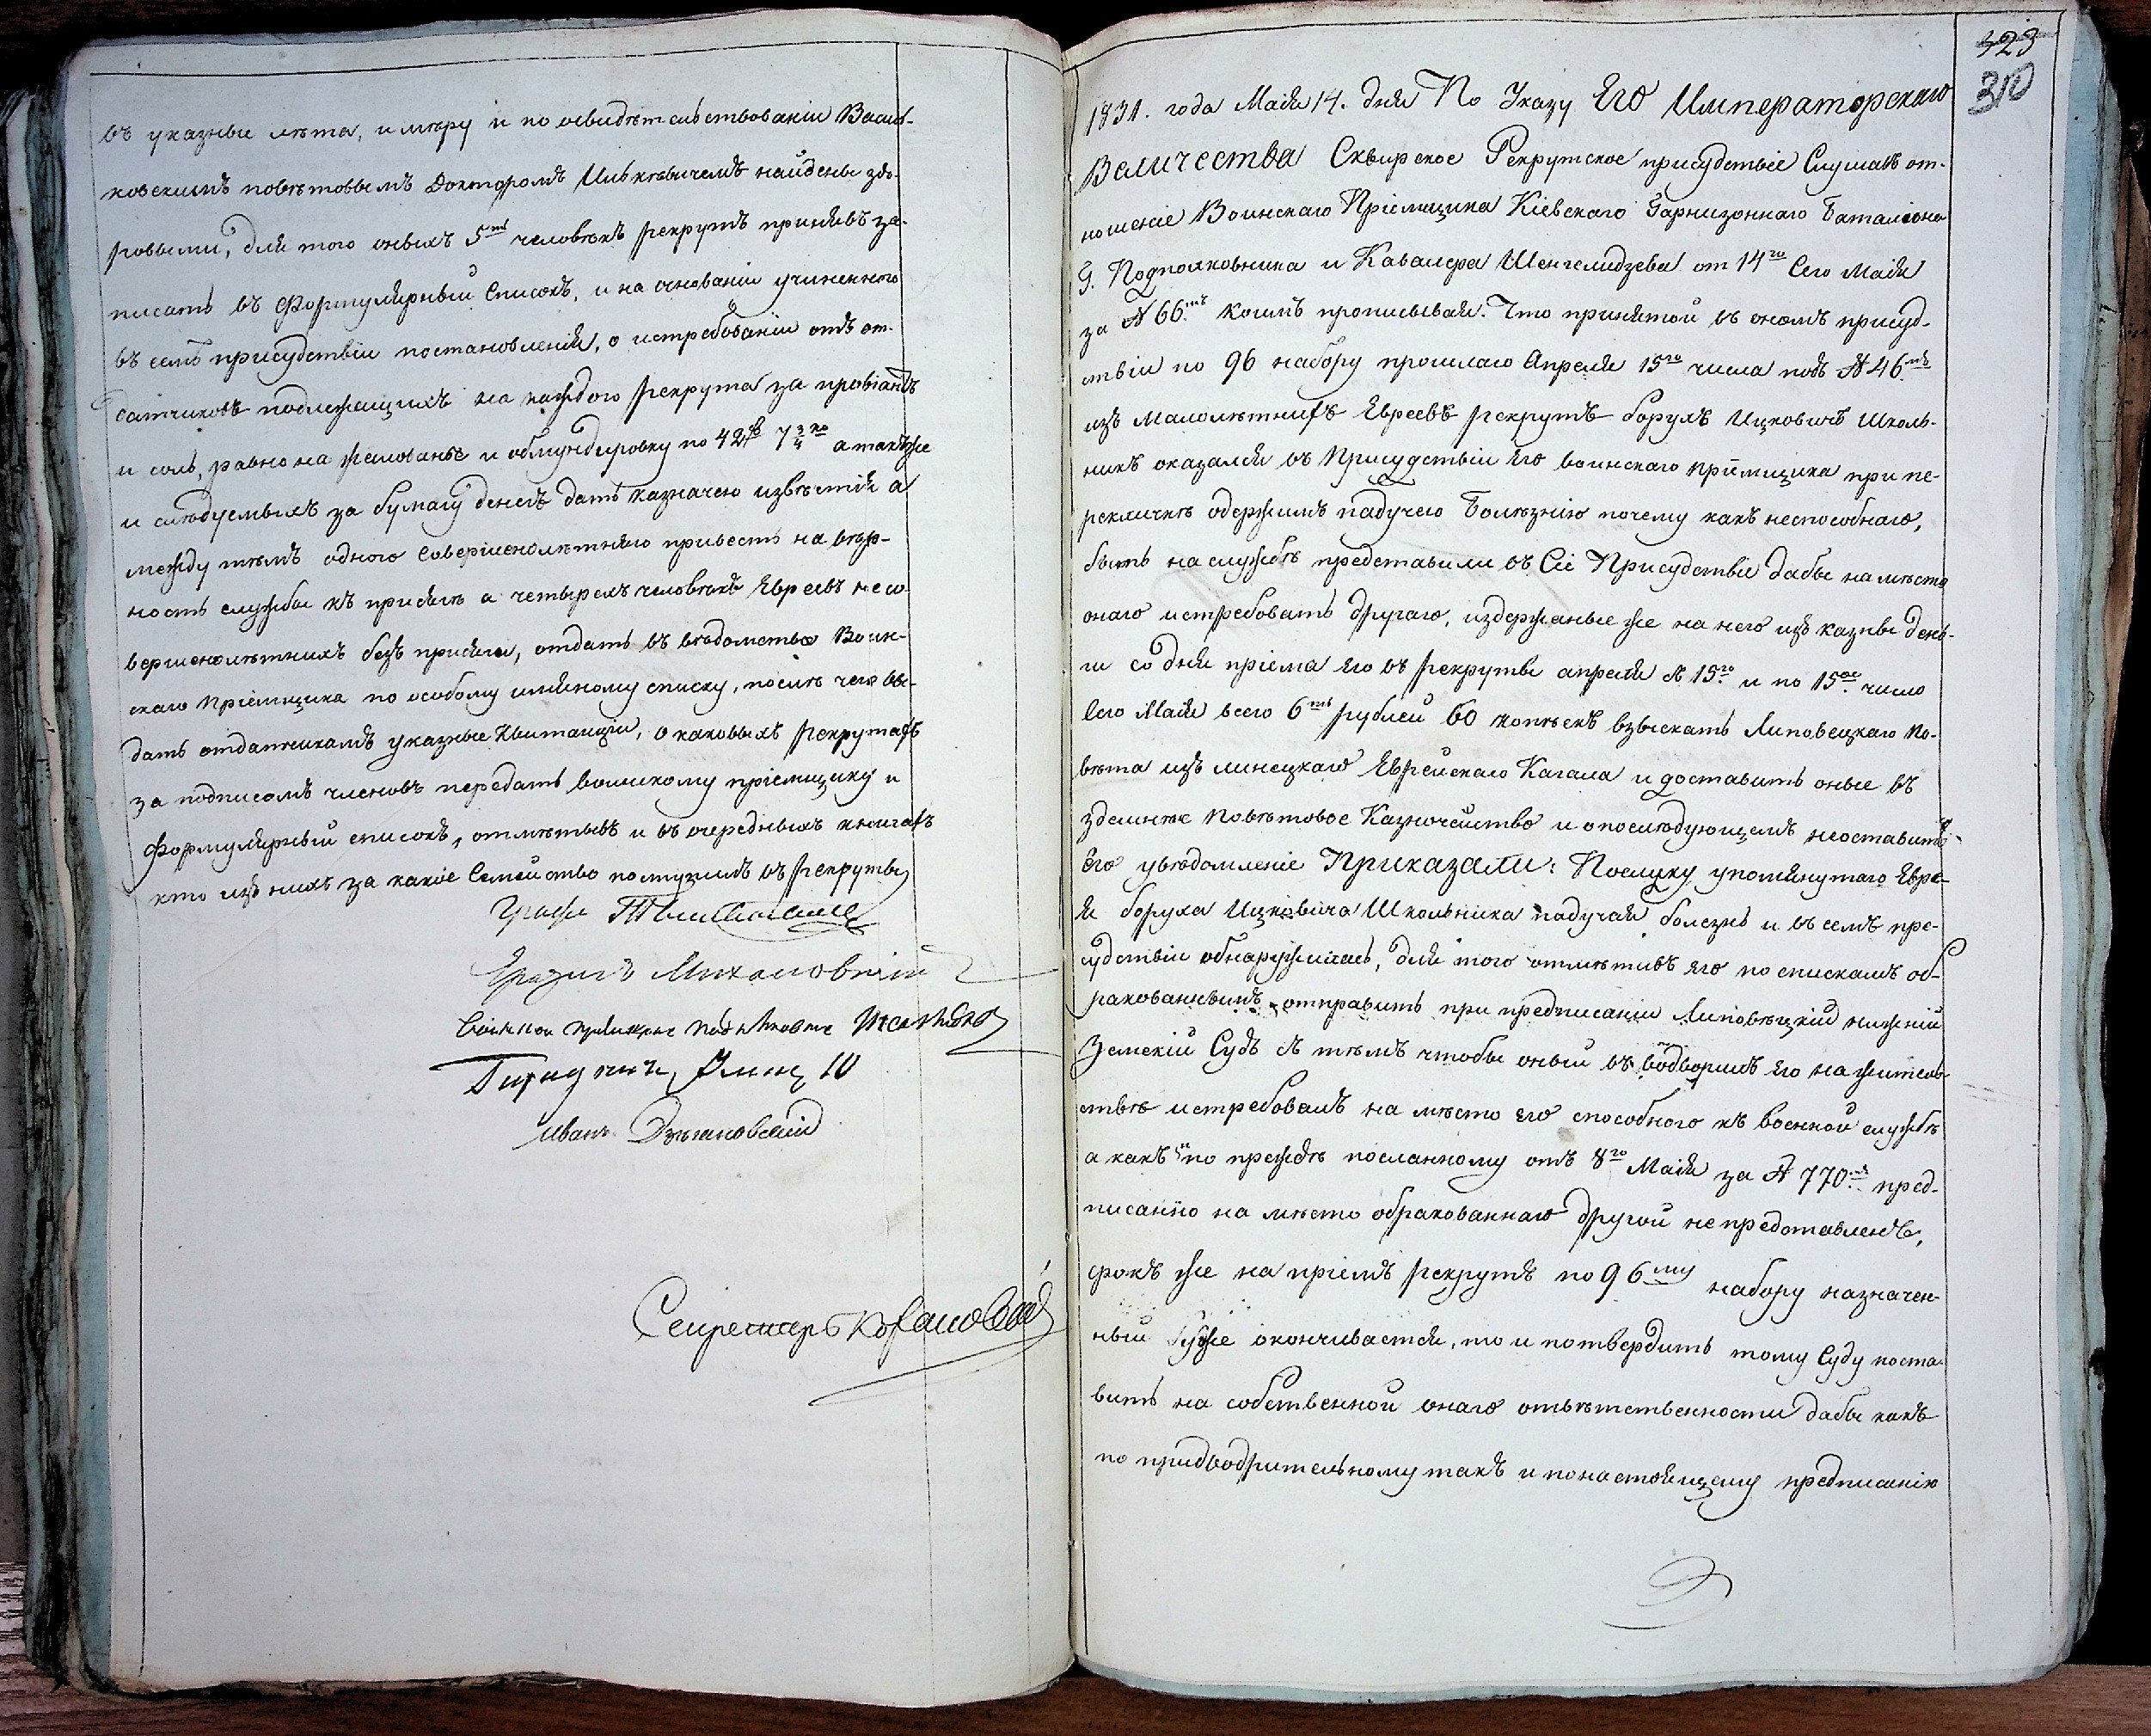 въ указные лѣта, и мѣру и по освидѣтельствованіи Василь-
ковскимъ повѣтовымъ Докторомъ найдены здо-
ровыми, для того оныхъ 5ть человѣкъ рекрутъ принявъ за-
писать въ Формулярный Списокъ, и на основаніи учиненного
въ семъ присудствіи постановленія, о истребованіи отъ от-
датчиковъ подлежащихъ на каждого рекрута за провіантъ
и соль, равно на жалованье и обмундировку по 42 р 7 3/4 ко а также
и слѣдуемыхъ за бумагу денегъ дать казначею извѣстія а
между тѣмъ одного совершенолѣтняго привесть на вѣр-
ность службы къ присягѣ а четырехъ человѣкъ Евреевъ несо-
вершенолѣтнихъ безъ присяги, отдать въ вѣдомство Воин-
скаго Пріемщика по особому имянному списку, послѣ чего вы-
дать отдатчикамъ указные Квитанціи, о каковыхъ рекрутахъ
за подписомъ членовъ передать воинскому пріемщику и
формулярный списокъ, отмѣтывъ и въ очередныхъ книгахъ
кто изъ нихъ за какое Семейство поступилъ въ рекруты
Графъ
Михаловскій
Воинской пріемщикъ подполковникъ
Иванъ
Секретарь
423
310
1831. года Маія 14. дня По Указу Его Императорскаго
Величества Сквирское Рекрутское присудствіе Слушавъ от-
ношеніе Воинскаго Пріемщика Кіевскаго Гарнизоннаго Баталіона
Г. Подполковника и Кавалера Шенгелидзева от 14го Сего Маія
за № 66мъ коимъ прописывая. Что принятой въ ономъ присуд-
ствіи по 96 набору прошлаго Апреля 15го числа подъ № 46мъ
изъ Малолѣтнихъ Евреевъ рекрутъ Борухъ Ицковичъ Школь-
никъ оказался въ Присудствіи его воинскаго пріемщика при пе-
рекличкѣ одержимъ падучею Болѣзнію почему какъ неспособнаго,
быть на службѣ представили въ Сіе Присудствіе дабы на мѣсто
онаго истребовать другаго, издержаные же на него изъ казны день-
ги со дня пріема его въ рекруты апреля съ 15го и по 15ое число
Сего Маія всего 6ть рублей 60 копѣекъ взыскать Липовецкаго По-
вѣта изъ линецкаго Еврейскаго Кагала и доставить оные въ
здешнѣе Повѣтовое Казначейство и о послѣдующемъ неоставить
его увѣдомленіе Приказали: Поелику упомянутаго Евре-
я Боруха Ицковича Школьника падучая болезнь и въ семъ при-
судствіи обнаружилась, для того отмѣтивъ его по спискамъ об-
ракованнымъ отправить при предписаніи Липовѣцкій нижній
Земскій Судъ съ тѣмъ чтобы оный въ водворилъ его на житель-
ствѣ истребовалъ на мѣсто его способного къ военной службѣ
а какъ и по прежде посланному отъ 8го Маія за № 770мъ пред-
писанію на мѣсто обракованнаго другой непредставленъ,
срокъ же на пріемъ рекрутъ по 96му набору назначен-
ный уже окончивается, то и потвердить тому Суду поста-
вить на собственной онаго отвѣтственности дабы какъ
по предводрительному такъ и по настоящему предписанію